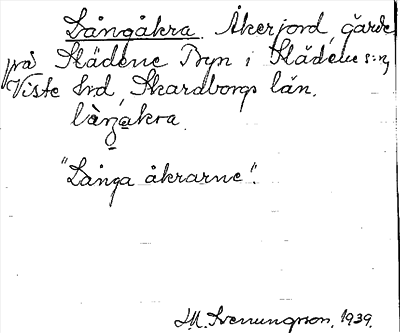 Långåkra. Åkerjord, gärde
på Slädene Byn i Slädene s:n,
Viste hrd, Skaraborgs län.
làŋakra
"Långa åkrarne".
I.M. Svenungsson, 1939.